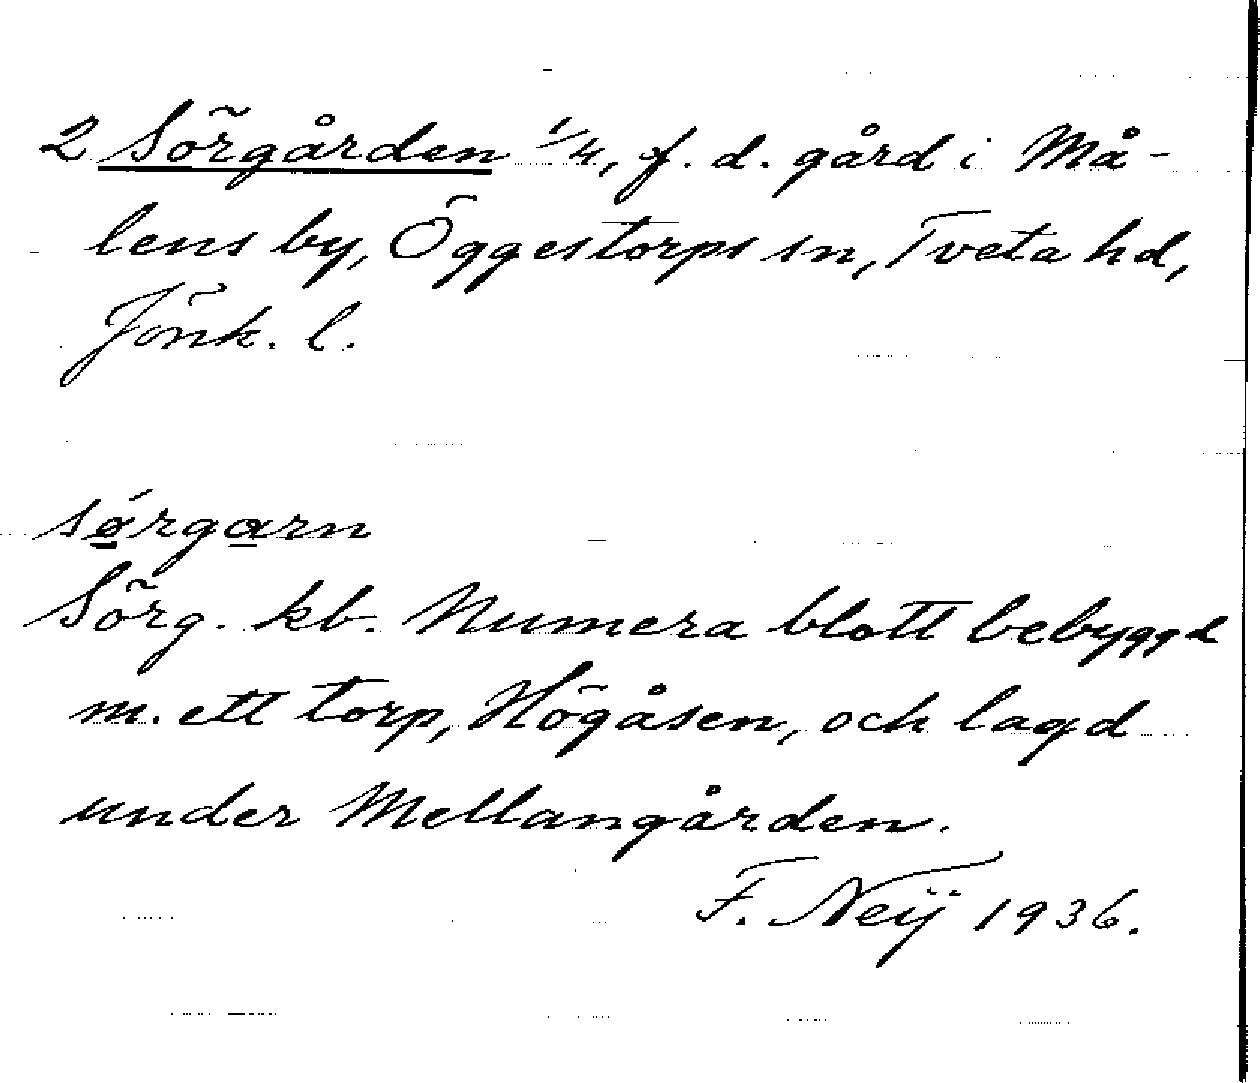 2 Sörgården 1/4, f. d. gård i Må-
lens by, Öggestorps sn, Tveta hd,
Jönk. l.
sǿrgarn
Sörg. kb. Numera blott bebyggd
m. ett torp, Högåsen, och lagd
under Mellangården.
F. Neij 1936.